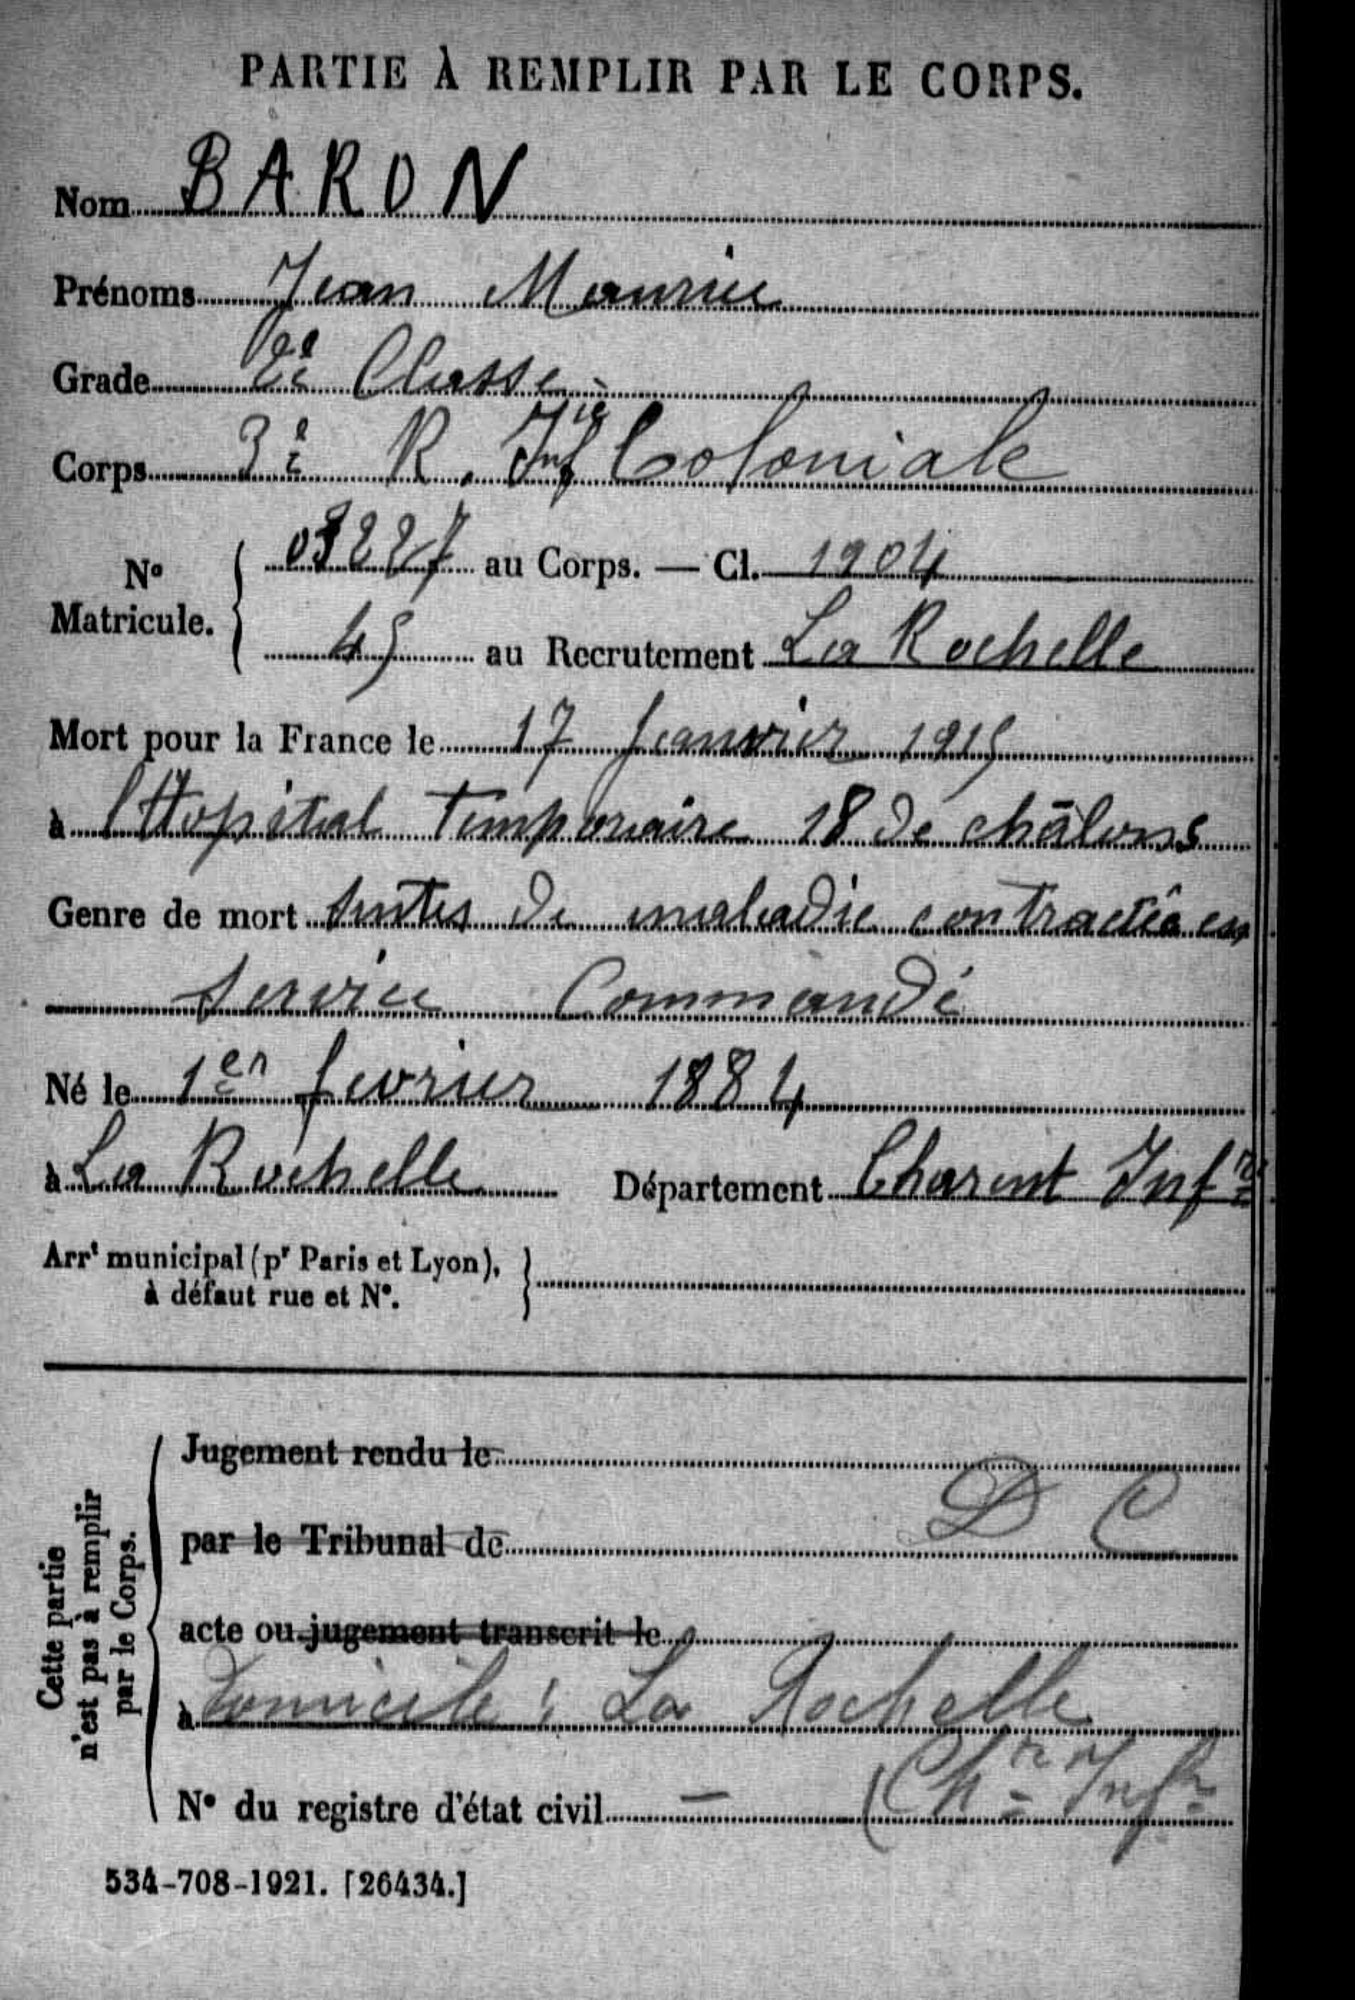 PARTIE À REMPLIR PAR LE CORPS.
Nom BARON
Prénoms Jean Maurice
Grade 2e Classe
Corps 3e R. Infie Coloniale
No Matricule. { 03227 au Corps. — Cl. 1904
45 au Recrutement La Rochelle
Mort pour la France le 17 Janvier 1915
à l'Hopital Temporaire 18 de châlons
Genre de mort suites de maladie contractée en
service Commandé
Né le 1er fevrier 1884
à La Rochelle Département Charent Infre
Arrt municipal (pr Paris et Lyon), à défaut rue et No. }
Cette partie n'est pas à remplir par le Corps.
Jugement rendu le
par le Tribunal de D C
acte ou jugement transcrit le
à Domicile : La Rochelle
No du registre d'état civil — (Chre Infre
534-708-1921. [26434.]